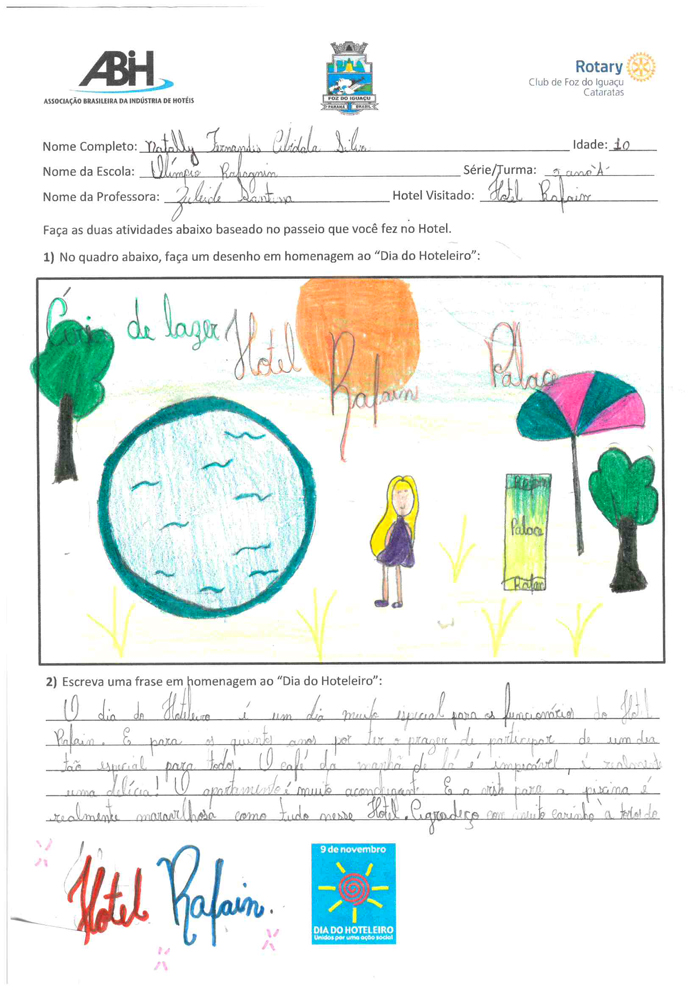 ABIH
ASSOCIAÇÃO BRASILEIRA DA INDÚSTRIA DE HOTÉIS
FOZ DO IGUAÇU
PARANÁ BRASIL
Rotary
Club de Foz do Iguaçu
Cataratas
Nome Completo: Natally Fernandes Silva Idade: 10
Nome da Escola: Olímpio Rafagnin Série/Turma: 5 ano "A"
Nome da Professora: Zeleide Santana Hotel Visitado: Hotel Rafain
Faça as duas atividades abaixo baseado no passeio que você fez no Hotel.
1) No quadro abaixo, faça um desenho em homenagem ao "Dia do Hoteleiro":
de lazer Hotel Rafain Palace
Rafain
Palace
Rafain
2) Escreva uma frase em homenagem ao "Dia do Hoteleiro":
O dia do Hoteleiro é um dia muito especial para os funcionários do Hotel
Rafain. E para os quintos anos por ter o prazer de participar de um dia
tão especial para todos. O café da manhã de lá é impecável, é realmente
uma delícia! O apartamento é muito aconchegante. E a vista para a piscina é
realmente maravilhosa como tudo nesse Hotel. Agradeço com muito carinho à todos do
Hotel Rafain.
9 de novembro
DIA DO HOTELEIRO
Unidos por uma ação social